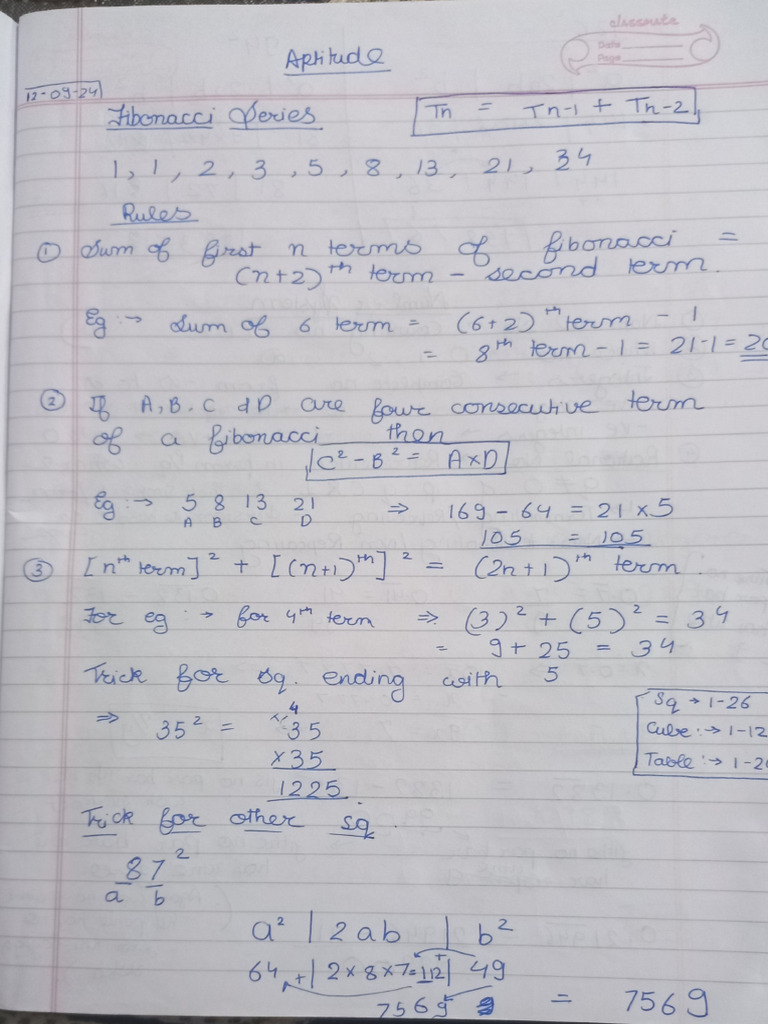 classmate
Date
Page
Aptitude
12-09-24
Fibonacci Series
Tn = Tn-1 + Tn-2
1, 1, 2, 3, 5, 8, 13, 21, 34
Rules
① Sum of first n terms of fibonacci =
(n+2)th term - second term.
Eg :→ Sum of 6 term = (6+2)th term - 1
= 8th term - 1 = 21-1 = 20
② If A, B, C & D are four consecutive term
of a fibonacci then
C² - B² = A×D
Eg :→ 5 8 13 21 ⇒ 169 - 64 = 21 × 5
A B C D 105 = 105
③ [nth term]² + [(n+1)th]² = (2n+1)th term
For eg :→ for 4th term ⇒ (3)² + (5)² = 34
= 9 + 25 = 34
Trick for sq. ending with 5
⇒ 35² = 35
4
×35
1225
Sq → 1-26
Cube :→ 1-12
Table :→ 1-20
Trick for other sq.
87²
a b
a² | 2ab | b²
64 + | 2×8×7=112 | 49
7569 = 7569